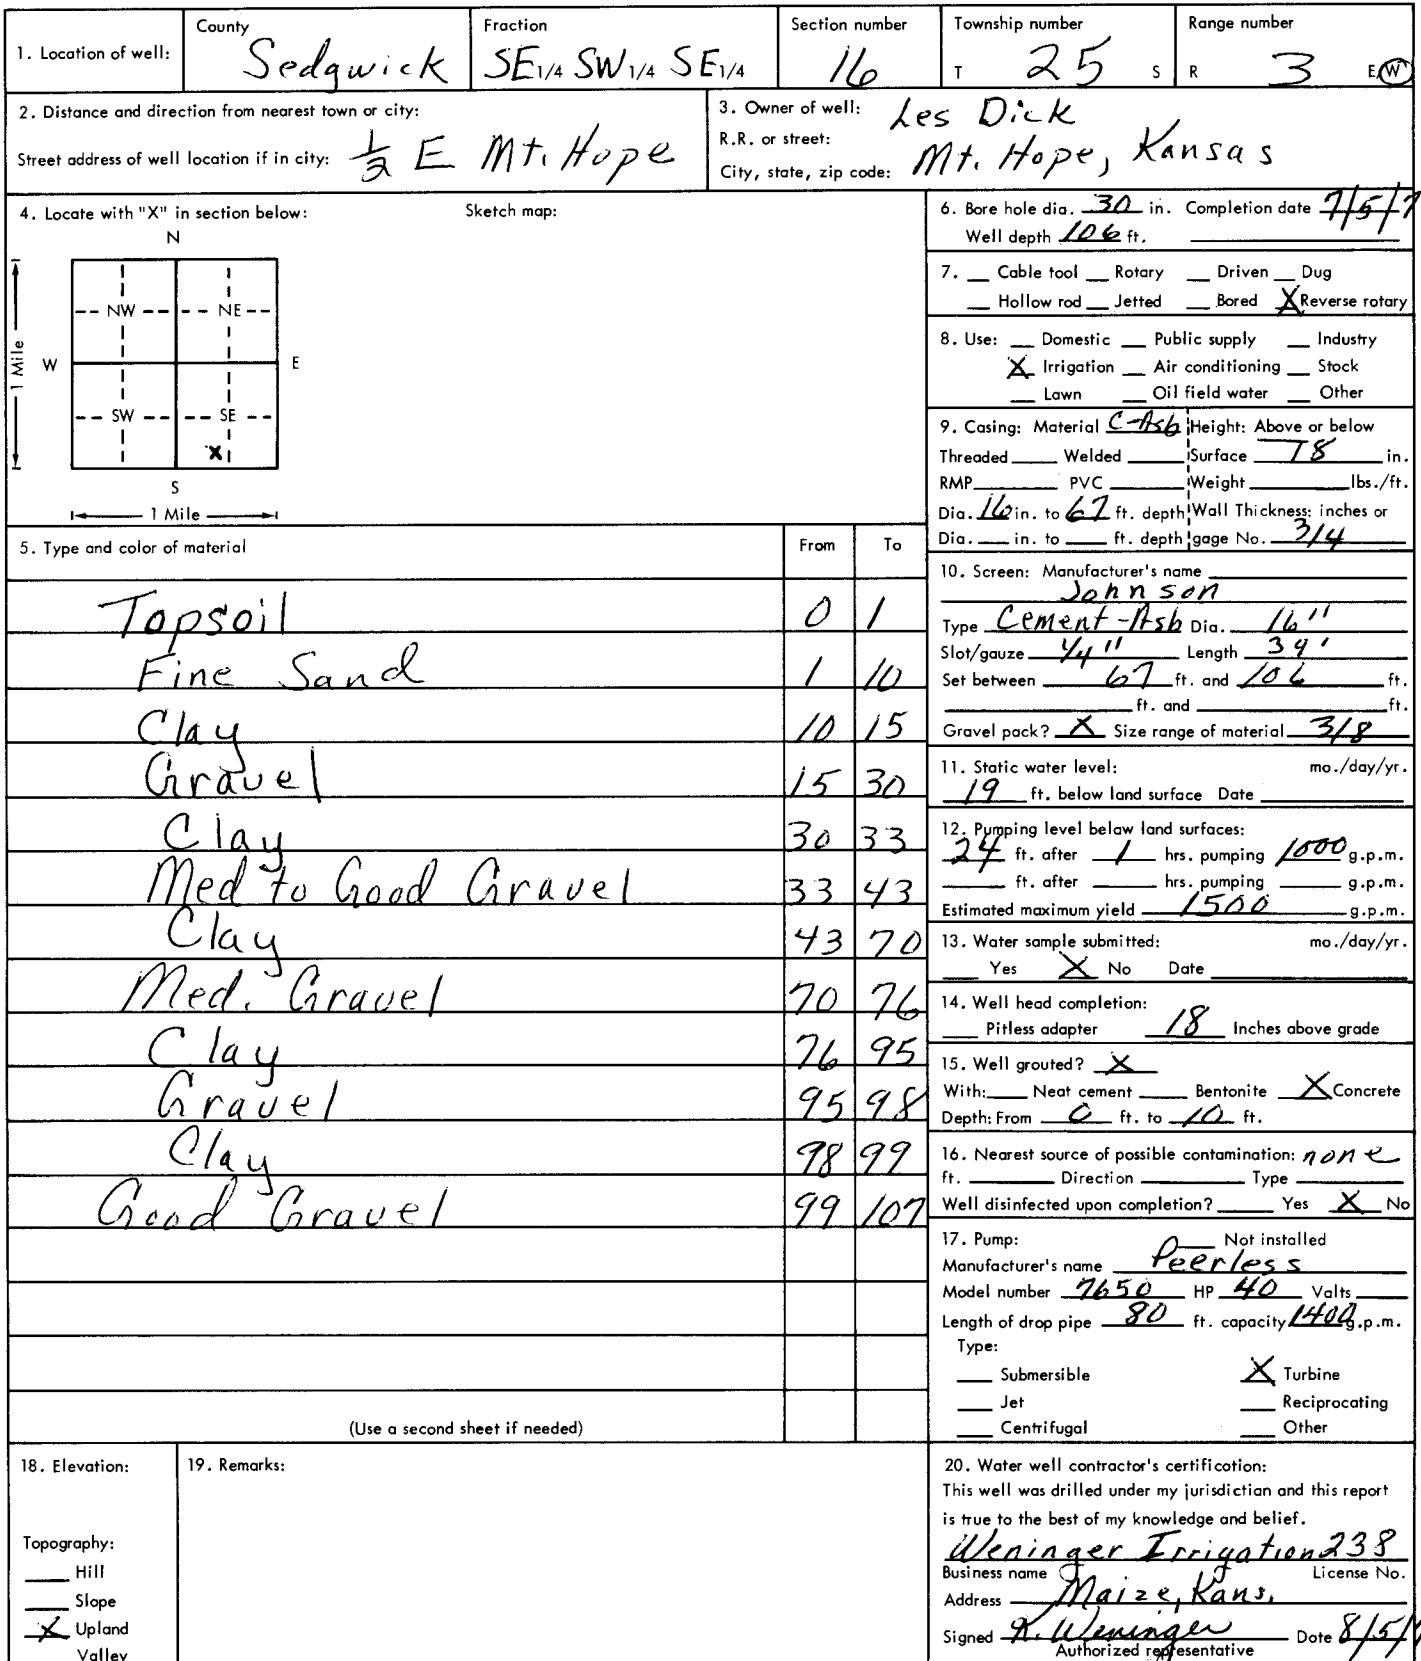 1. Location of well: County Sedgwick Fraction SE 1/4 SW 1/4 SE 1/4 Section number 16 Township number T 25 S Range number R 3 E/W
2. Distance and direction from nearest town or city:
Street address of well location if in city: 1/2 E Mt. Hope
3. Owner of well: Les Dick
R.R. or street:
City, state, zip code: Mt. Hope, Kansas
4. Locate with "X" in section below: Sketch map:
N
NW NE
W E
1 Mile
SW SE
X
S
1 Mile
5. Type and color of material From To
Topsoil 0 1
Fine Sand 1 10
Clay 10 15
Gravel 15 30
Clay 30 33
Med to Good Gravel 33 43
Clay 43 70
Med. Gravel 70 76
Clay 76 95
Gravel 95 98
Clay 98 99
Good Gravel 99 107
(Use a second sheet if needed)
6. Bore hole dia. 30 in. Completion date 7/5/7
Well depth 106 ft.
7. Cable tool Rotary Driven Dug
Hollow rod Jetted Bored X Reverse rotary
8. Use: Domestic Public supply Industry
X Irrigation Air conditioning Stock
Lawn Oil field water Other
9. Casing: Material C-Asb Height: Above or below
Threaded Welded Surface 18 in.
RMP PVC Weight lbs./ft.
Dia. 16 in. to 67 ft. depth Wall Thickness: inches or
Dia. in. to ft. depth gage No. 3/4
10. Screen: Manufacturer's name
Johnson
Type Cement-Asb Dia. 16"
Slot/gauze 1/4" Length 39'
Set between 67 ft. and 106 ft.
ft. and ft.
Gravel pack? X Size range of material 3/8
11. Static water level: mo./day/yr.
19 ft. below land surface Date
12. Pumping level below land surfaces:
24 ft. after 1 hrs. pumping 1000 g.p.m.
ft. after hrs. pumping g.p.m.
Estimated maximum yield 1500 g.p.m.
13. Water sample submitted: mo./day/yr.
Yes X No Date
14. Well head completion:
Pitless adapter 18 Inches above grade
15. Well grouted? X
With: Neat cement Bentonite X Concrete
Depth: From 0 ft. to 10 ft.
16. Nearest source of possible contamination: none
ft. Direction Type
Well disinfected upon completion? Yes X No
17. Pump: Not installed
Manufacturer's name Peerless
Model number 7650 HP 40 Valts
Length of drop pipe 80 ft. capacity 1400 g.p.m.
Type:
Submersible X Turbine
Jet Reciprocating
Centrifugal Other
18. Elevation:
Topography:
Hill
Slope
X Upland
Valley
19. Remarks:
20. Water well contractor's certification:
This well was drilled under my jurisdictian and this report
is true to the best of my knowledge and belief.
Weninger Irrigation 238
Business name License No.
Address Maize, Kans.
Signed K. Weninger Date 8/5/
Authorized representative